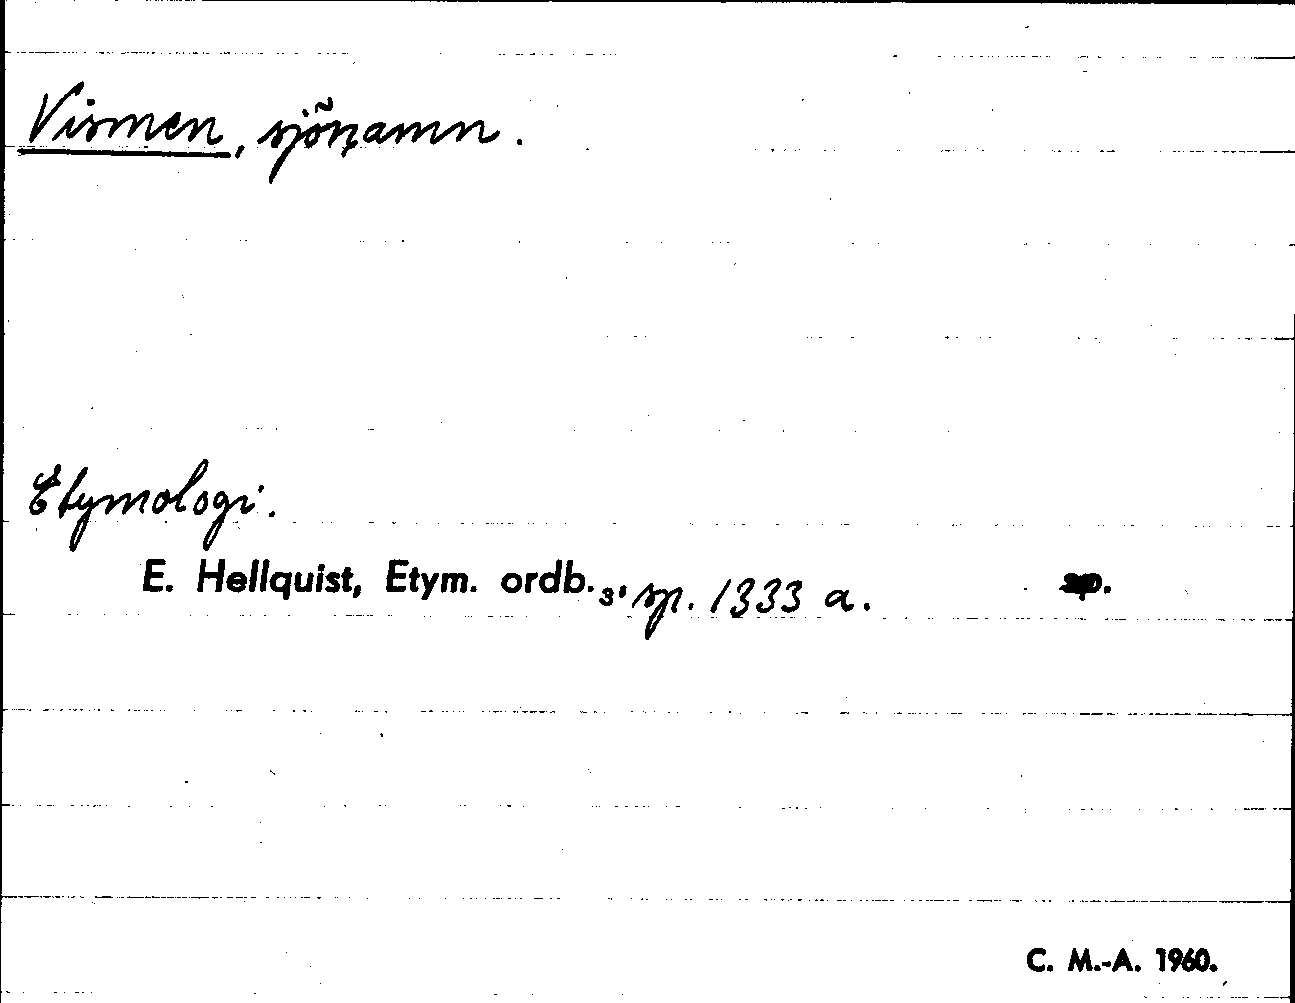 Vismen, sjönamn.
Etymologi.
E. Hellquist, Etym. ordb. 3, sp. 1333 a. sp.
C. M.-A. 1960.